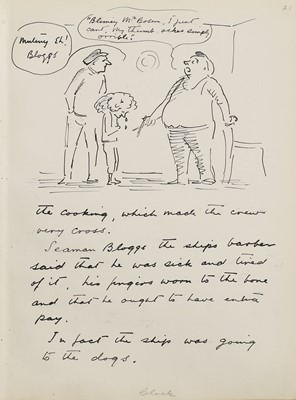 Mutiny Eh!
Bloggs
"Blimey Mr Bosun, I just
cant. My thumb aches simply
orrible".
the cooking, which made the crew
very cross.
Seaman Bloggs the ships barber
said that he was sick and tired
of it, his fingers worn to the bone
and that he ought to have extra
pay.
In fact the ship was going
to the dogs.
Block